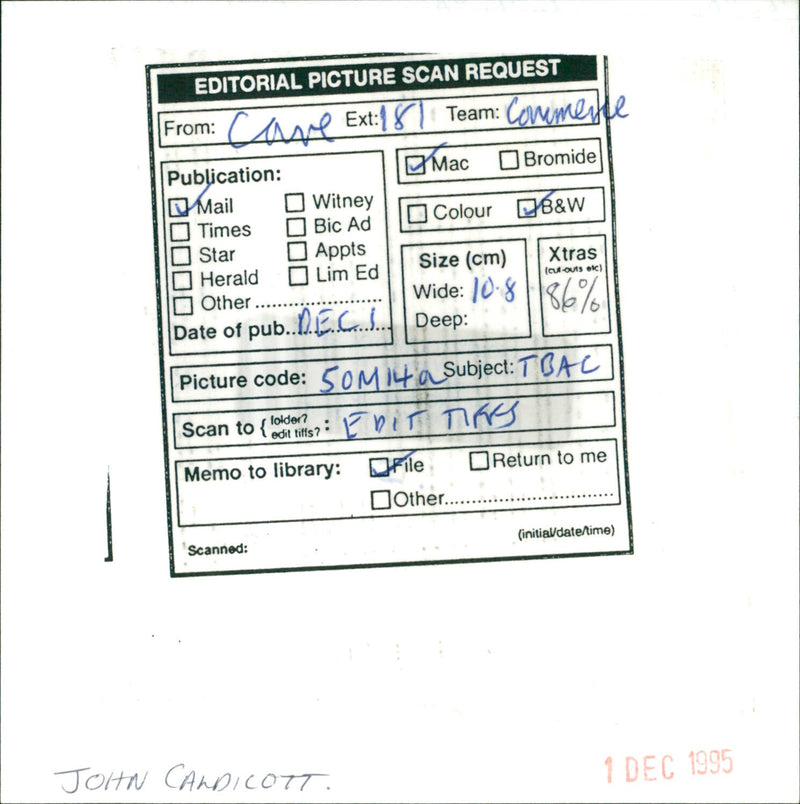 EDITORIAL PICTURE SCAN REQUEST
From: Cave Ext: 181 Team: Commerce
Publication:
Mail
Witney
Times
Bic Ad
Star
Appts
Herald
Lim Ed
Other ....................
Date of pub..DEC 1......
Mac
Bromide
Colour
B&W
Size (cm)
Wide: 10.8
Deep:
Xtras
(cut-outs etc)
86%
Picture code: 50M14a Subject: TBAC
Scan to { folder? edit tiffs? : EDIT TIFFS
Memo to library:
File
Return to me
Other...............................
Scanned:
(initial/date/time)
JOHN CALDICOTT.
1 DEC 1995